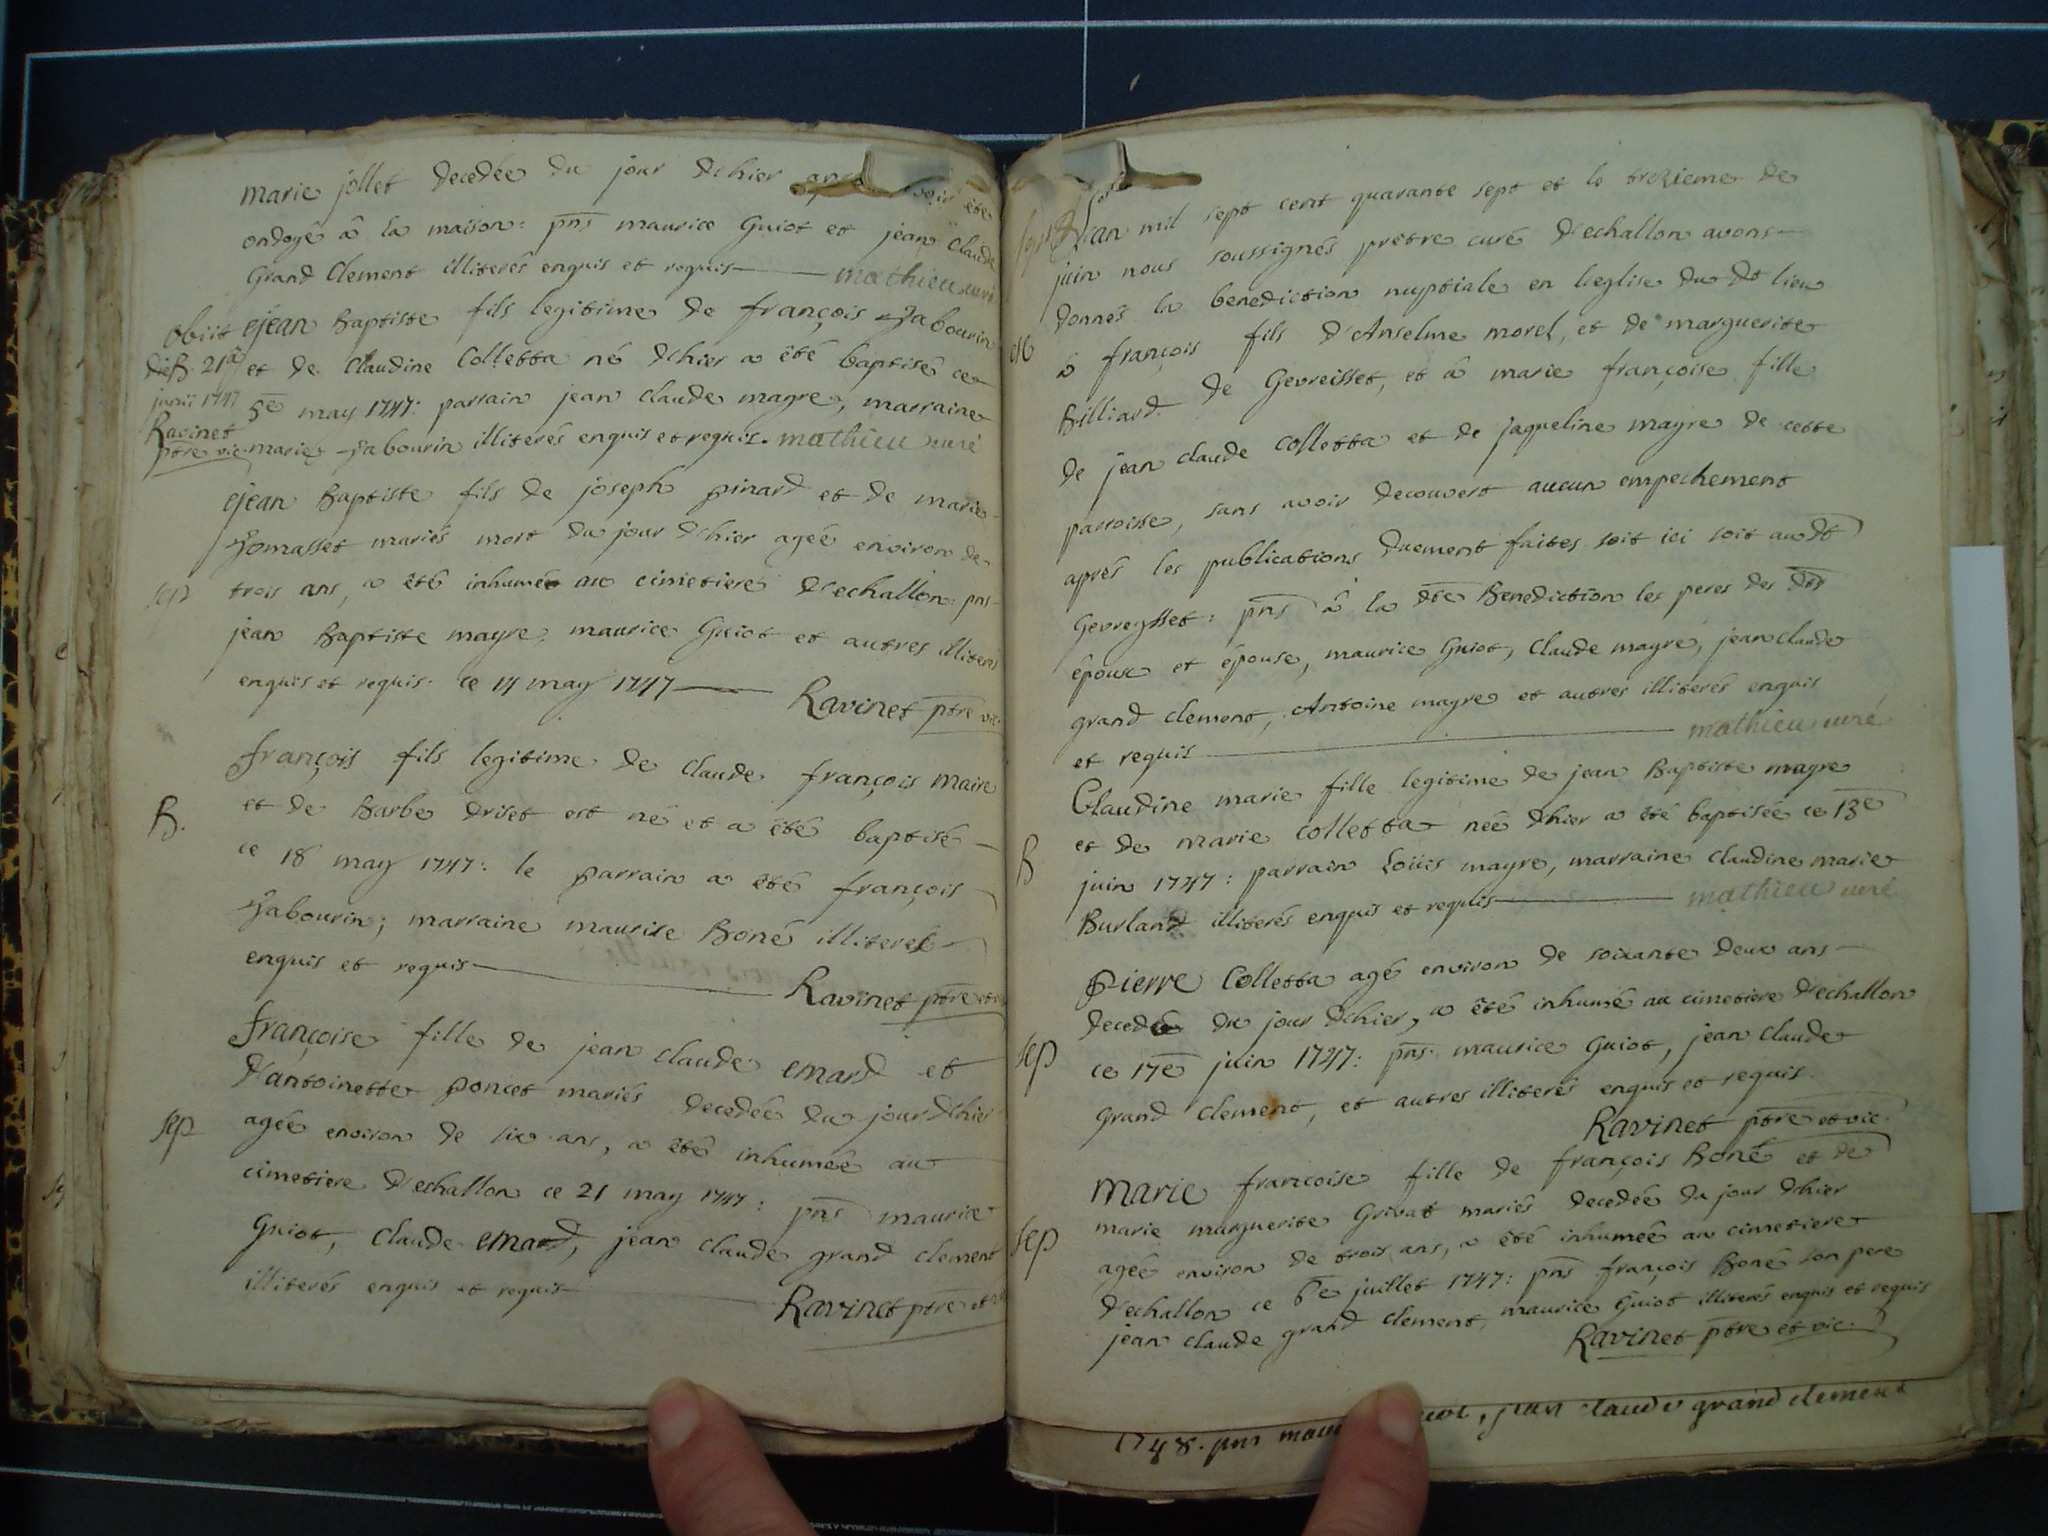 marie jollet decedée du jour d'hier avoir été
ondoyé â la maison: pns maurice Guiot et jean Claude
Grand Clement illiterés enquis et requis mathieu curé
obiit
die 21a
junii 1747
Ravinet
ptre vic
jean Baptiste fils legitime de françois Tabourin
et de Claudine Colletta né d'hier a été baptisé ce
5e may 1747: parrain jean claude mayre, marraine
marie Tabourin illiterés enquis et requis. mathieu curé
jean Baptiste fils de joseph pinard et de marie
Tomasset mariés mort du jour d'hier agée environ de
sep
trois ans, a été inhumé au cimetiere d'echallon: pns
jean Baptiste mayre, maurice Guiot et autres illiterés
enquis et requis. ce 14 may 1747 Ravinet ptre vic
françois fils legitime de claude françois maire
B.
et de Barbe driset est né et a été baptisé
ce 18 may 1747: le parrain a été françois
Tabourin; marraine maurise Boné illiterés
enquis et requis Ravinet ptre et
françoise fille de jean claude emard et
d'antoinette poncet mariés decedée du jour d'hier
sep
agée environ de six ans, a été inhumée au
cimetiere d'echallon ce 21 may 1747: pns maurice
Guiot, claude emard, jean claude grand clement
illiterés enquis et requis
Ravinet ptre et
L'an mil sept cent quarante sept et le trezieme de
juin nous soussignés prètre curé d'echallon avons
donnés la benediction nuptiale en l'eglise du dt lieu
â françois fils d'Anselme morel, et de marguerite
Billiard de Gevreisset, et â marie françoise fille
de jean claude colletta et de jaqueline mayre de cette
parroisse, sans avoir decouvert aucun empechement
aprés les publications duement faites soit ici soit audt
Gevreysset: pns â la dte Benediction les peres des dts
époux et épouse, maurice Guiot, Claude mayre, jean claude
grand clement, Antoine mayre et autres illiterés enquis
et requis mathieu curé
Claudine marie fille legitime de jean Baptiste mayre
et de marie colletta née d'hier a été baptisée ce 13e
B
juin 1747: parrain Loüis mayre, marraine claudine marie
Burland illiterés enquis et requis mathieu curé
Pierre Colletta agé environ de soixante deux ans
decedé du jour d'hier, a été inhumé au cimetiere d'echallon
sep
ce 17e juin 1747: pns. maurice Guiot, jean Claude
Grand clement, et autres illiterés enquis et requis.
Ravinet ptre et vic.
Marie francoise fille de françois Boné et de
marie marguerite Grivat mariés decedée du jour d'hier
sep
agée environ de trois ans, a été inhumée au cimetiere
d'echallon ce 6e juillet 1747: pns françois Boné son pere
jean claude grand clement, maurice Guiot illiterés enquis et requis
Ravinet ptre et vic.
1748. pns jean claude grand clement